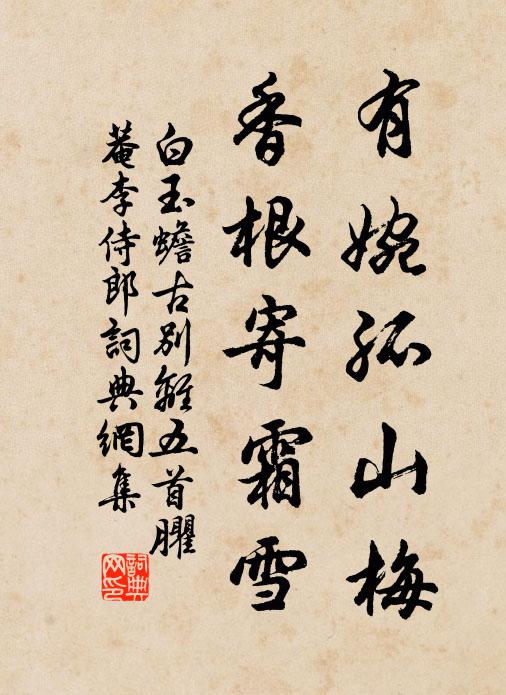 有婉孤山梅
香根寄霜雪
白玉蟾古別離五首臞
菴李侍郎詞典網集
詞典网印